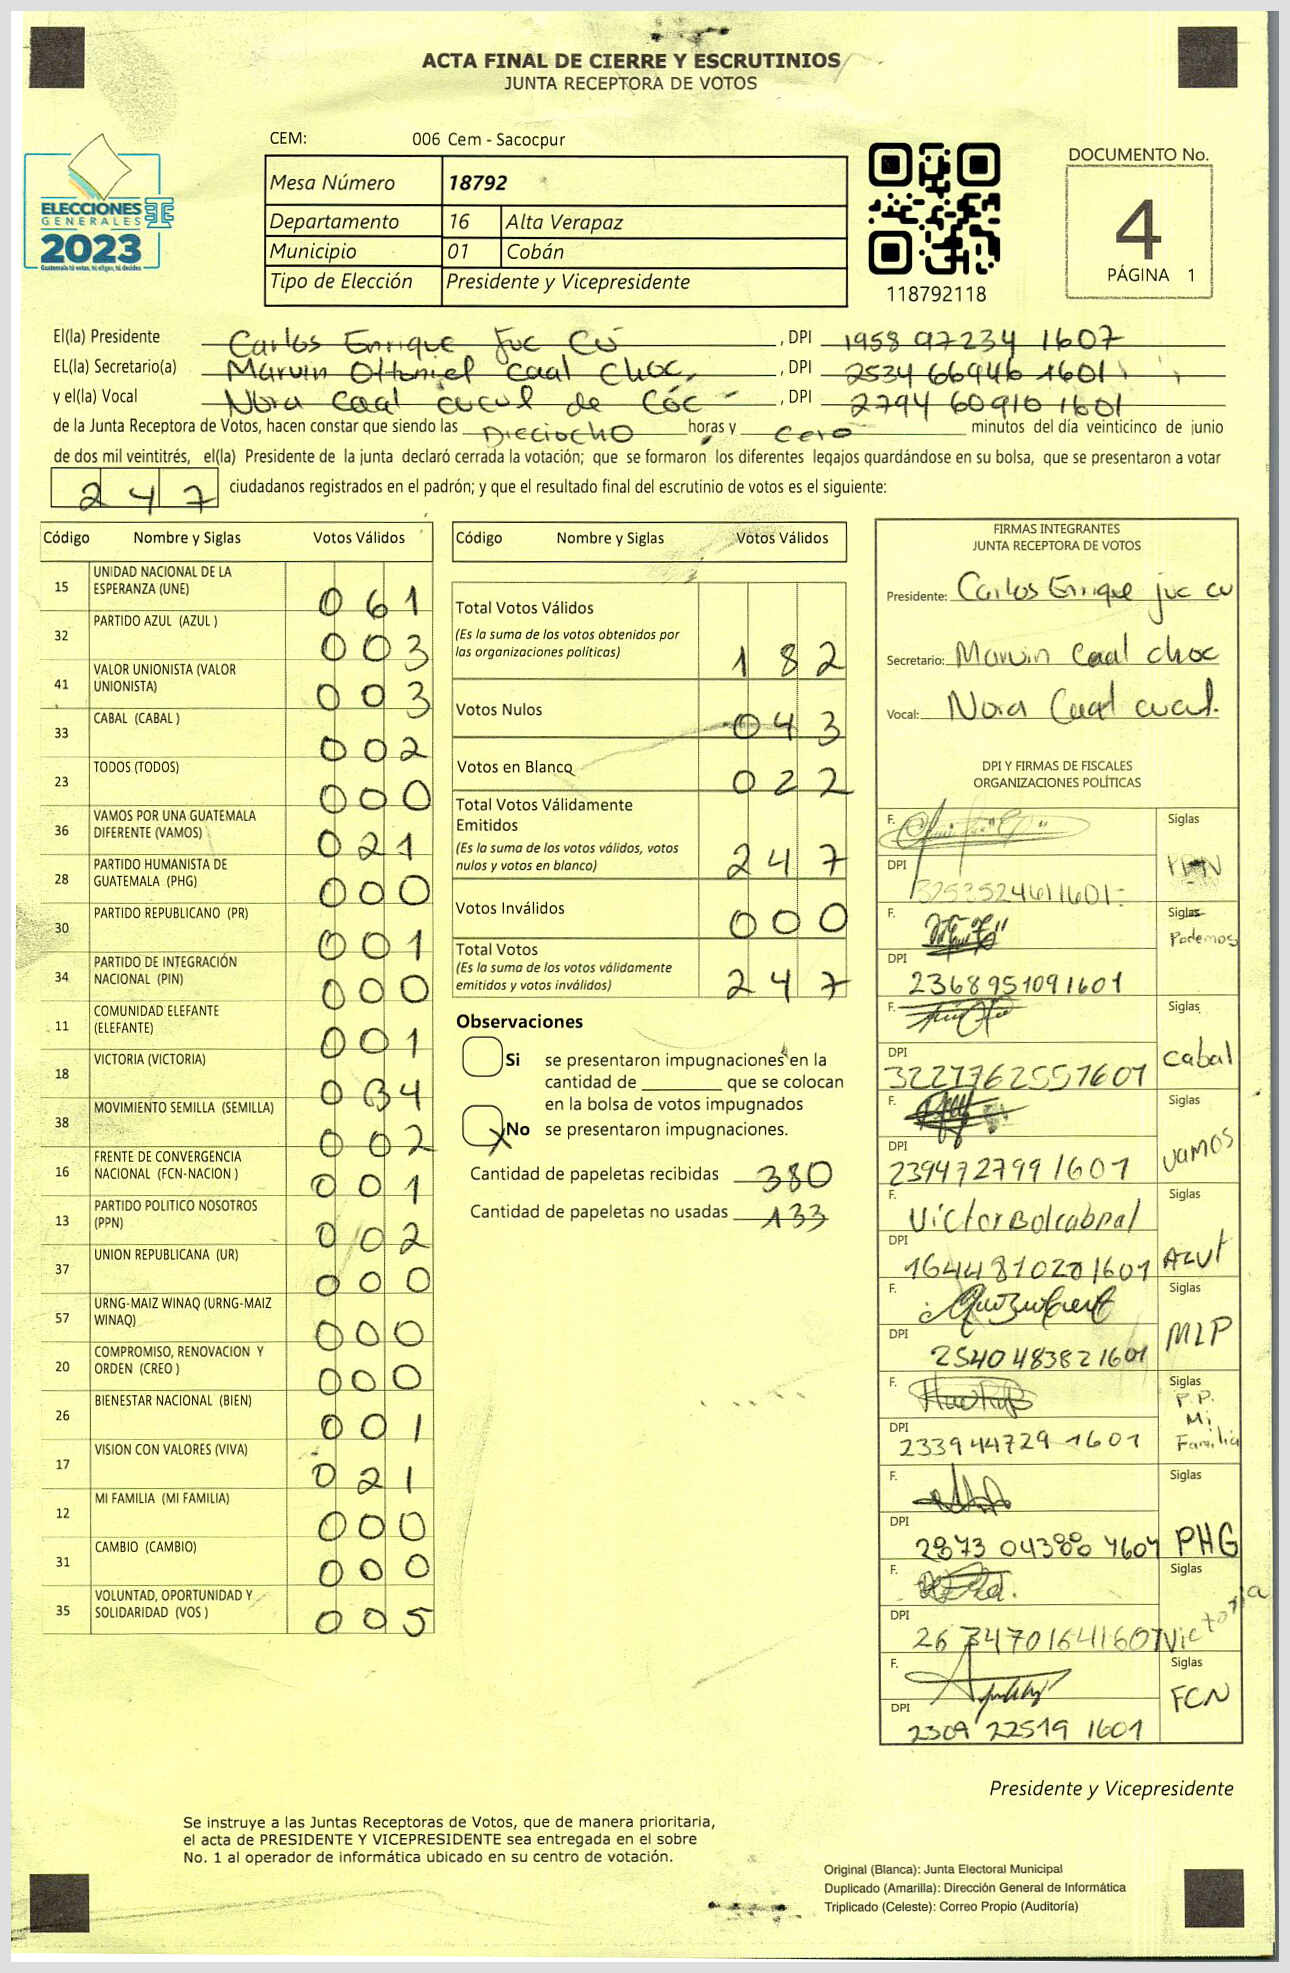 ACTA FINAL DE CIERRE Y ESCRUTINIOS
JUNTA RECEPTORA DE VOTOS
CEM: 006 Cem - Sacocpur
ELECCIONES
GENERALES
2023
Guatemala tú votas, tú eliges, tú decides
Mesa Número 18792
Departamento 16 Alta Verapaz
Municipio 01 Cobán
Tipo de Elección Presidente y Vicepresidente
118792118
DOCUMENTO No.
4
PÁGINA 1
El(la) Presidente Carlos Enrique Juc Cú , DPI 1958 97234 1607
EL(la) Secretario(a) Marvin Ottoniel Caal Choc , DPI 2534 66946 1601
y el(la) Vocal Nora Caal cucul de Cóc , DPI 2794 60910 1601
de la Junta Receptora de Votos, hacen constar que siendo las Dieciocho horas y Cero minutos del día veinticinco de junio
de dos mil veintitrés, el(la) Presidente de la junta declaró cerrada la votación; que se formaron los diferentes legajos guardándose en su bolsa, que se presentaron a votar
247 ciudadanos registrados en el padrón; y que el resultado final del escrutinio de votos es el siguiente:
Código Nombre y Siglas Votos Válidos
15 UNIDAD NACIONAL DE LA
ESPERANZA (UNE) 061
32 PARTIDO AZUL (AZUL ) 003
41 VALOR UNIONISTA (VALOR
UNIONISTA) 003
33 CABAL (CABAL ) 002
23 TODOS (TODOS) 000
36 VAMOS POR UNA GUATEMALA
DIFERENTE (VAMOS) 021
28 PARTIDO HUMANISTA DE
GUATEMALA (PHG) 000
30 PARTIDO REPUBLICANO (PR) 001
34 PARTIDO DE INTEGRACIÓN
NACIONAL (PIN) 000
11 COMUNIDAD ELEFANTE
(ELEFANTE) 001
18 VICTORIA (VICTORIA) 034
38 MOVIMIENTO SEMILLA (SEMILLA) 002
16 FRENTE DE CONVERGENCIA
NACIONAL (FCN-NACION ) 001
13 PARTIDO POLITICO NOSOTROS
(PPN) 002
37 UNION REPUBLICANA (UR) 000
57 URNG-MAIZ WINAQ (URNG-MAIZ
WINAQ) 000
20 COMPROMISO, RENOVACION Y
ORDEN (CREO ) 000
26 BIENESTAR NACIONAL (BIEN) 001
17 VISION CON VALORES (VIVA) 021
12 MI FAMILIA (MI FAMILIA) 000
31 CAMBIO (CAMBIO) 000
35 VOLUNTAD, OPORTUNIDAD Y
SOLIDARIDAD (VOS ) 005
Código Nombre y Siglas Votos Válidos
Total Votos Válidos
(Es la suma de los votos obtenidos por
las organizaciones políticas) 182
Votos Nulos 043
Votos en Blanco 022
Total Votos Válidamente
Emitidos
(Es la suma de los votos válidos, votos
nulos y votos en blanco) 247
Votos Inválidos 000
Total Votos
(Es la suma de los votos válidamente
emitidos y votos inválidos) 247
Observaciones
Si se presentaron impugnaciones en la
cantidad de ________ que se colocan
en la bolsa de votos impugnados
X No se presentaron impugnaciones.
Cantidad de papeletas recibidas 380
Cantidad de papeletas no usadas 133
FIRMAS INTEGRANTES
JUNTA RECEPTORA DE VOTOS
Presidente: Carlos Enrique juc cu
Secretario: Marvin Caal choc
Vocal: Nora Caal cucul.
DPI Y FIRMAS DE FISCALES
ORGANIZACIONES POLÍTICAS
F. Siglas
DPI
F. Siglas Podemos
DPI 2368951091601
F. Siglas Cabal
DPI 3227762551601
F. Siglas vamos
DPI 239472799 1601
F. Victor Bol cabnal Siglas AZUL
DPI 1644810201601
F. Siglas MLP
DPI 2540483821601
F. Siglas P.P.
Mi
Familia
DPI 233944729 1601
F. Siglas PHG
DPI 2873
F. Siglas Victoria
DPI 2634701641601
F. Siglas FCN
DPI 2309 22519 1601
Presidente y Vicepresidente
Se instruye a las Juntas Receptoras de Votos, que de manera prioritaria,
el acta de PRESIDENTE Y VICEPRESIDENTE sea entregada en el sobre
No. 1 al operador de informática ubicado en su centro de votación.
Original (Blanca): Junta Electoral Municipal
Duplicado (Amarilla): Dirección General de Informática
Triplicado (Celeste): Correo Propio (Auditoría)